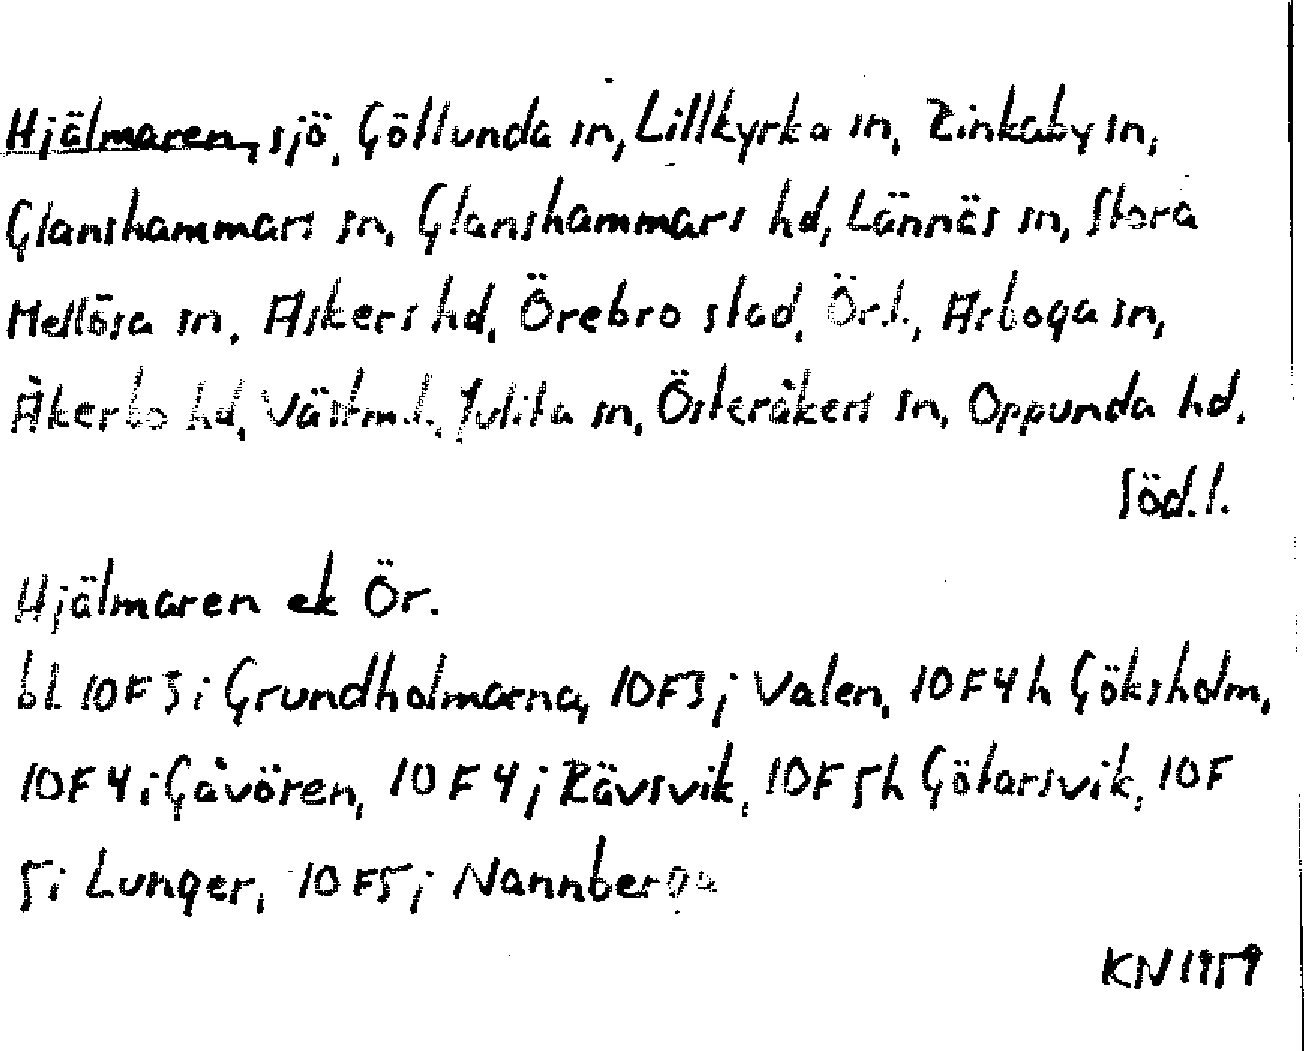 Hjälmaren, sjö, Göllunda sn, Lillkyrka sn, Rinkaby sn,
Glanshammars sn, Glanshammars hd, Lännäs sn, Stora
Mellösa sn, Askers hd, Örebro stad, Ör.l., Arboga sn,
Åkerbo hd, Västm.l., Julita sn, Österåkers sn, Oppunda hd.
Söd.l.
Hjälmaren ek Ör.
bl 10F3i Grundholmarna, 10F3j Valen, 10F4h Göksholm,
10F4i Gåvören, 10F4j Rävsvik, 10F5h Götarsvik, 10F
5i Lunger, 10F5j Nannberga
KN 1959